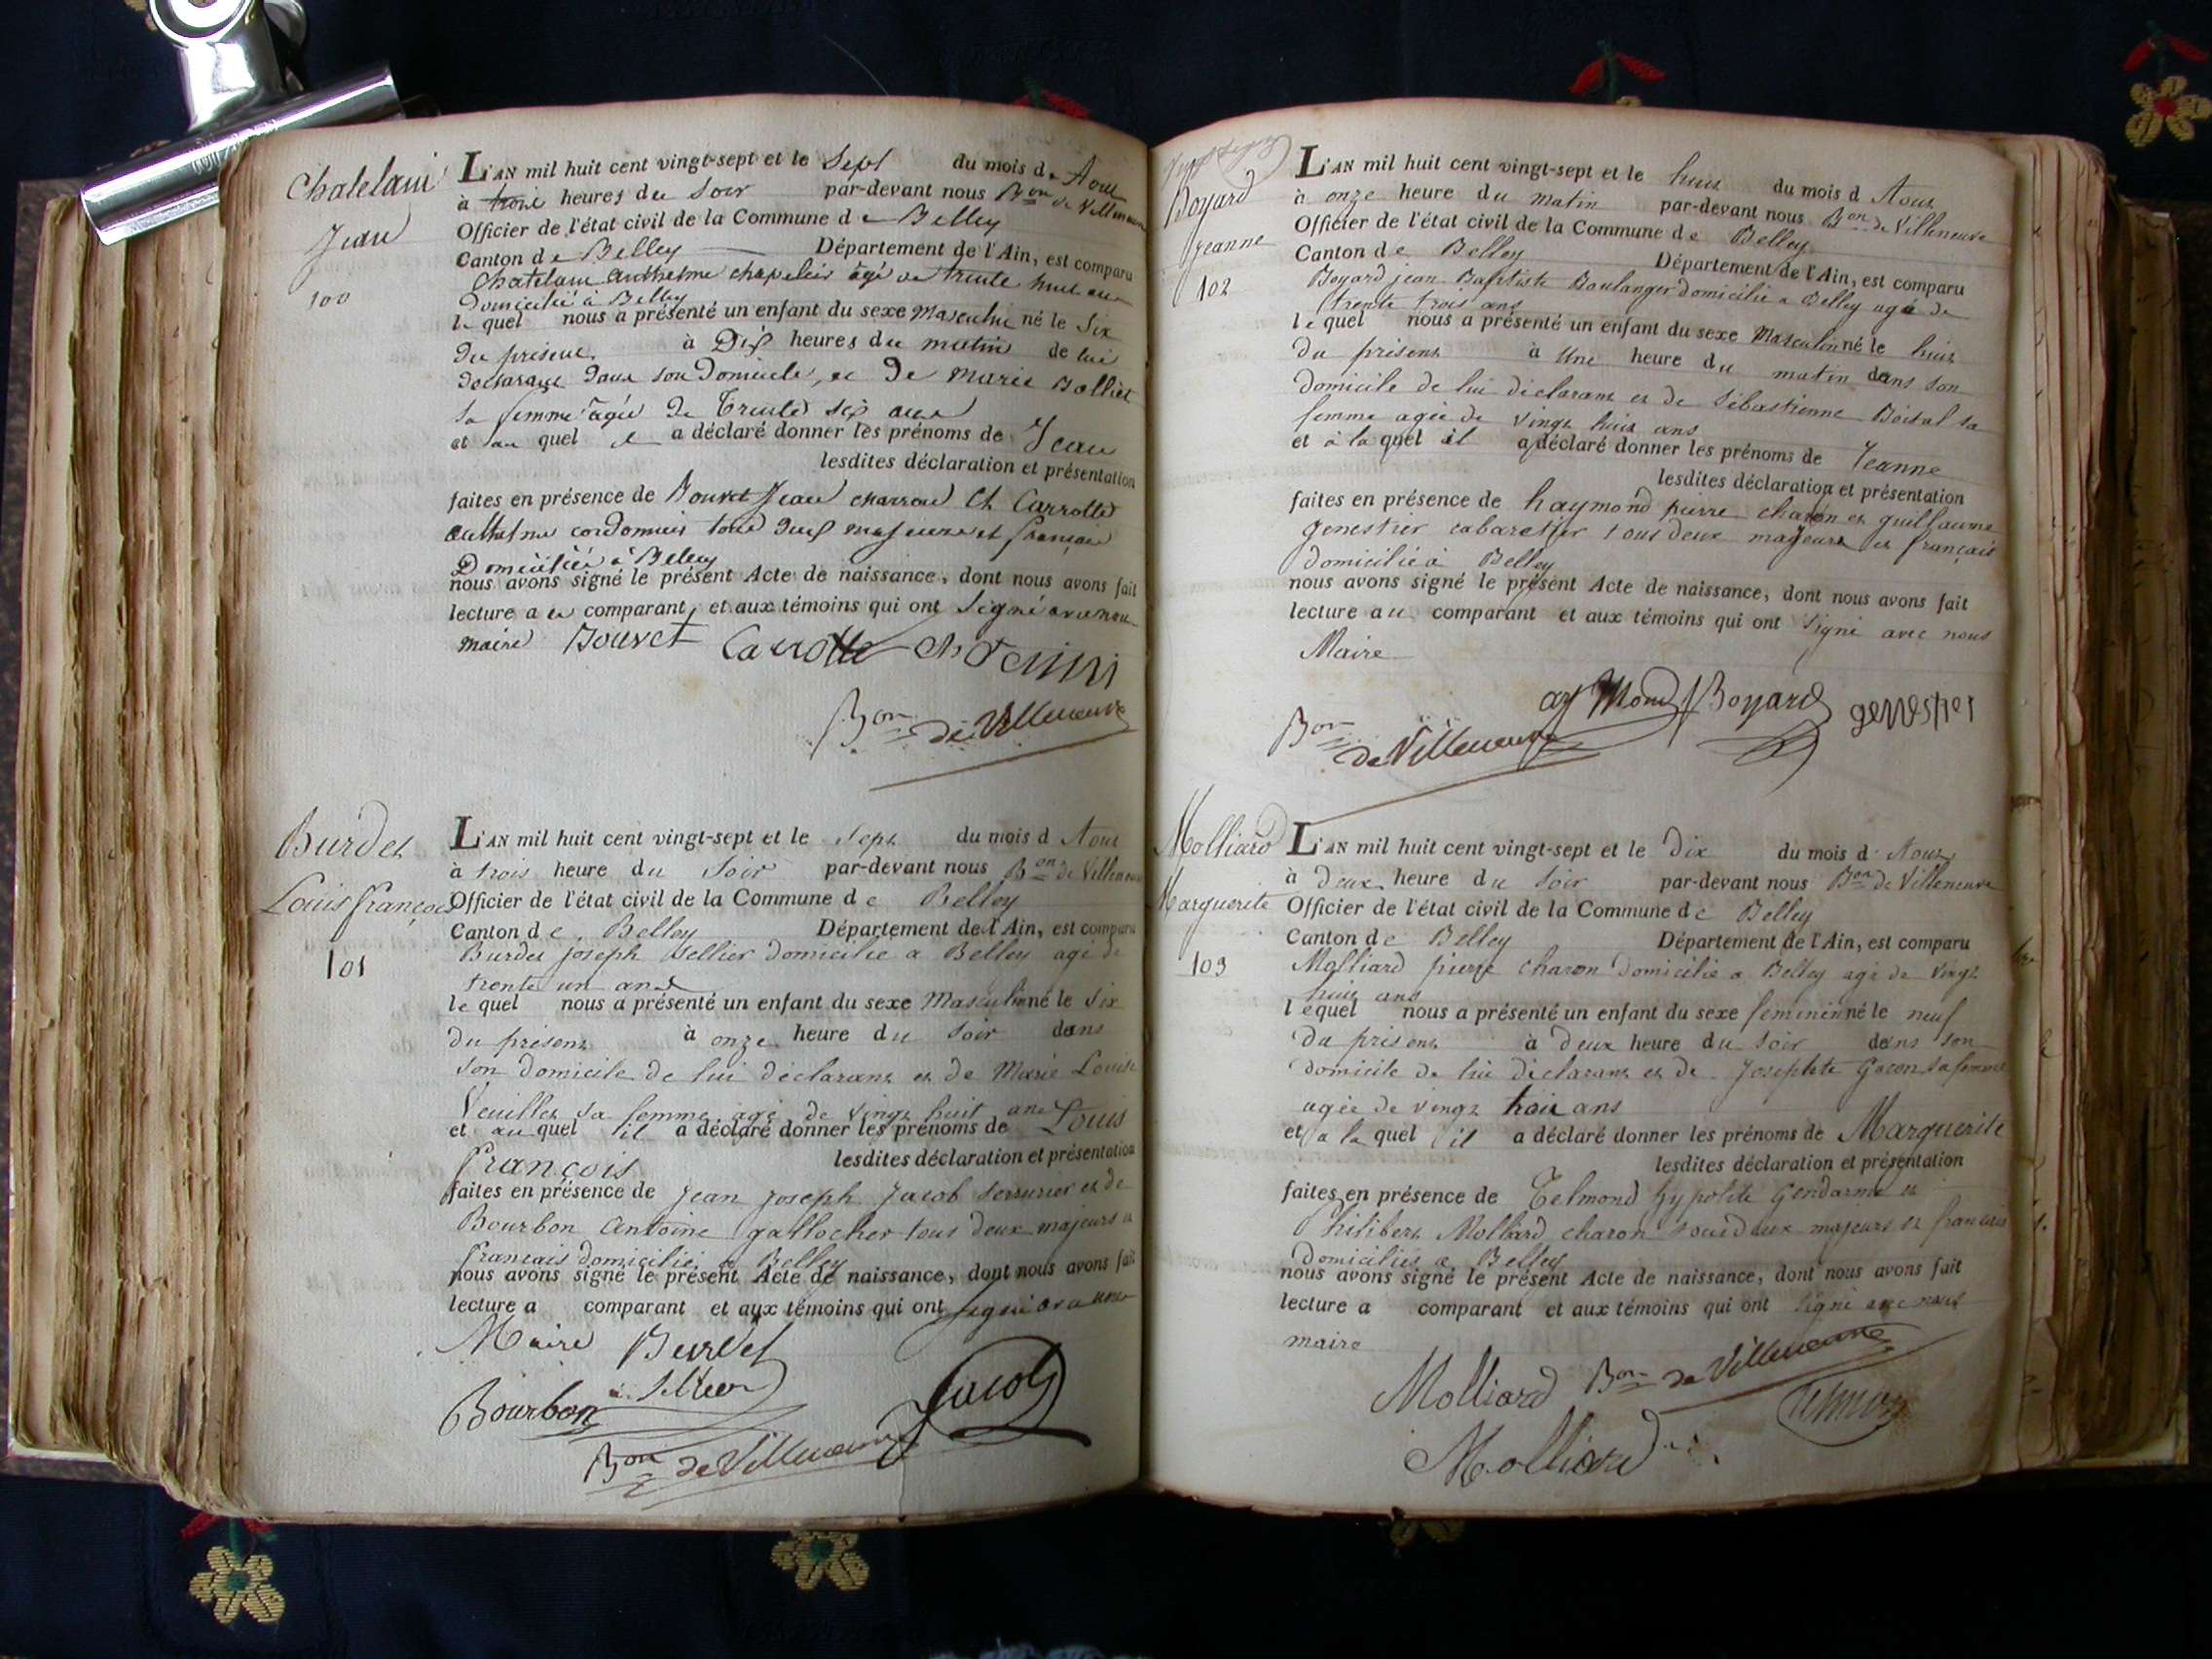 Chatelain
Jean
100
L'AN mil huit cent vingt-sept et le Sept du mois de Aout
à trois heures du Soir par-devant nous Bon de Villeneuve
Officier de l'état civil de la Commune de Belley
Canton de Belley Département de l'Ain, est comparu
Chatelain anthelme chapelier âgé de trente huit ans
Domicilié à Belley
le quel nous a présenté un enfant du sexe Masculin né le Six
du présent à Dix heures du matin de lui
déclarant dans son Domicile, et De Marie Bolliet
sa femme âgée De Trente six ans
et au quel il a déclaré donner les prénoms de Jean
lesdites déclaration et présentation
faites en présence de Bouvet Jean charron et Carrotte
anthelme cordonnier tous deux majeurs et français
Domiciliés à Belley
nous avons signé le présent Acte de naissance, dont nous avons fait
lecture a ce comparant, et aux témoins qui ont Signé avec nous
maire Bouvet Carrotte
Bon de Villeneuve
Burdet
Louis françois
101
L'AN mil huit cent vingt-sept et le Sept du mois d Aout
à trois heure du Soir par-devant nous Bon de Villeneuve
Officier de l'état civil de la Commune de Belley
Canton de Belley Département de l'Ain, est comparu
Burdet joseph Sellier domicilié a Belley agé de
trente un ans
le quel nous a présenté un enfant du sexe Masculin né le Six
du présent à onze heure du Soir dans
son domicile de lui déclarant et de Marie Louise
sa femme agé de vingt huit ans
et au quel il a déclaré donner les prénoms de Louis
François lesdites déclaration et présentation
faites en présence de Jean joseph Jacob Serrurier et de
Bourbon Antoine gallocher tous deux majeurs et
français domiciliés a Belley
nous avons signé le présent Acte de naissance, dont nous avons fait
lecture a comparant et aux témoins qui ont signé avec nous
Maire Burdet
Sellier
Bourbon Jacob
Bon de Villeneuve
Boyard
jeanne
102
L'AN mil huit cent vingt-sept et le huit du mois d Aout
à onze heure du matin par-devant nous Bon de Villeneuve
Officier de l'état civil de la Commune de Belley
Canton de Belley Département de l'Ain, est comparu
Boyard jean Baptiste Boulanger domicilié a Belley agé de
trente trois ans
le quel nous a présenté un enfant du sexe Masculin né le huit
du présent à Une heure du matin dans son
domicile de lui déclarant et de Sébastienne sa
femme agée de vingt huit ans
et à la quel il a déclaré donner les prénoms de Jeanne
lesdites déclaration et présentation
faites en présence de haymond pierre charon et guillaume
genestier cabaretier tous deux majeurs et français
domicilié à Belley
nous avons signé le présent Acte de naissance, dont nous avons fait
lecture au comparant et aux témoins qui ont signé avec nous
Maire
aymond Boyard genestier
Bon de Villeneuve
Molliard
Marguerite
103
L'AN mil huit cent vingt-sept et le dix du mois d Aout
à deux heure du Soir par-devant nous Bon de Villeneuve
Officier de l'état civil de la Commune de Belley
Canton de Belley Département de l'Ain, est comparu
Molliard pierre charon domicilié a Belley agé de vingt
huit ans
lequel nous a présenté un enfant du sexe féminin né le neuf
du présent à deux heure du Soir dans son
domicile de lui déclarant et de Josephte Gocon sa femme
agée de vingt trois ans
et a la quel il a déclaré donner les prénoms de Marguerite
lesdites déclaration et présentation
faites en présence de Telmond hypolite Gendarme et
Philibert Molliard charon tous deux majeurs et français
domiciliés a Belley
nous avons signé le présent Acte de naissance, dont nous avons fait
lecture a comparant et aux témoins qui ont signé avec nous
maire
Molliard Bon de Villeneuve
Molliard